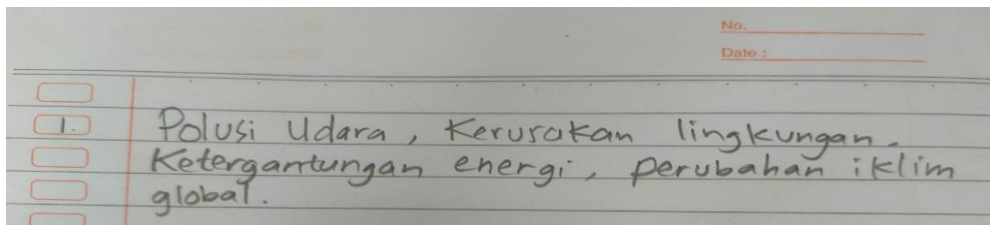 No.
Date :
1. Polusi Udara, Kerusakan lingkungan.
Ketergantungan energi, perubahan iklim
global.